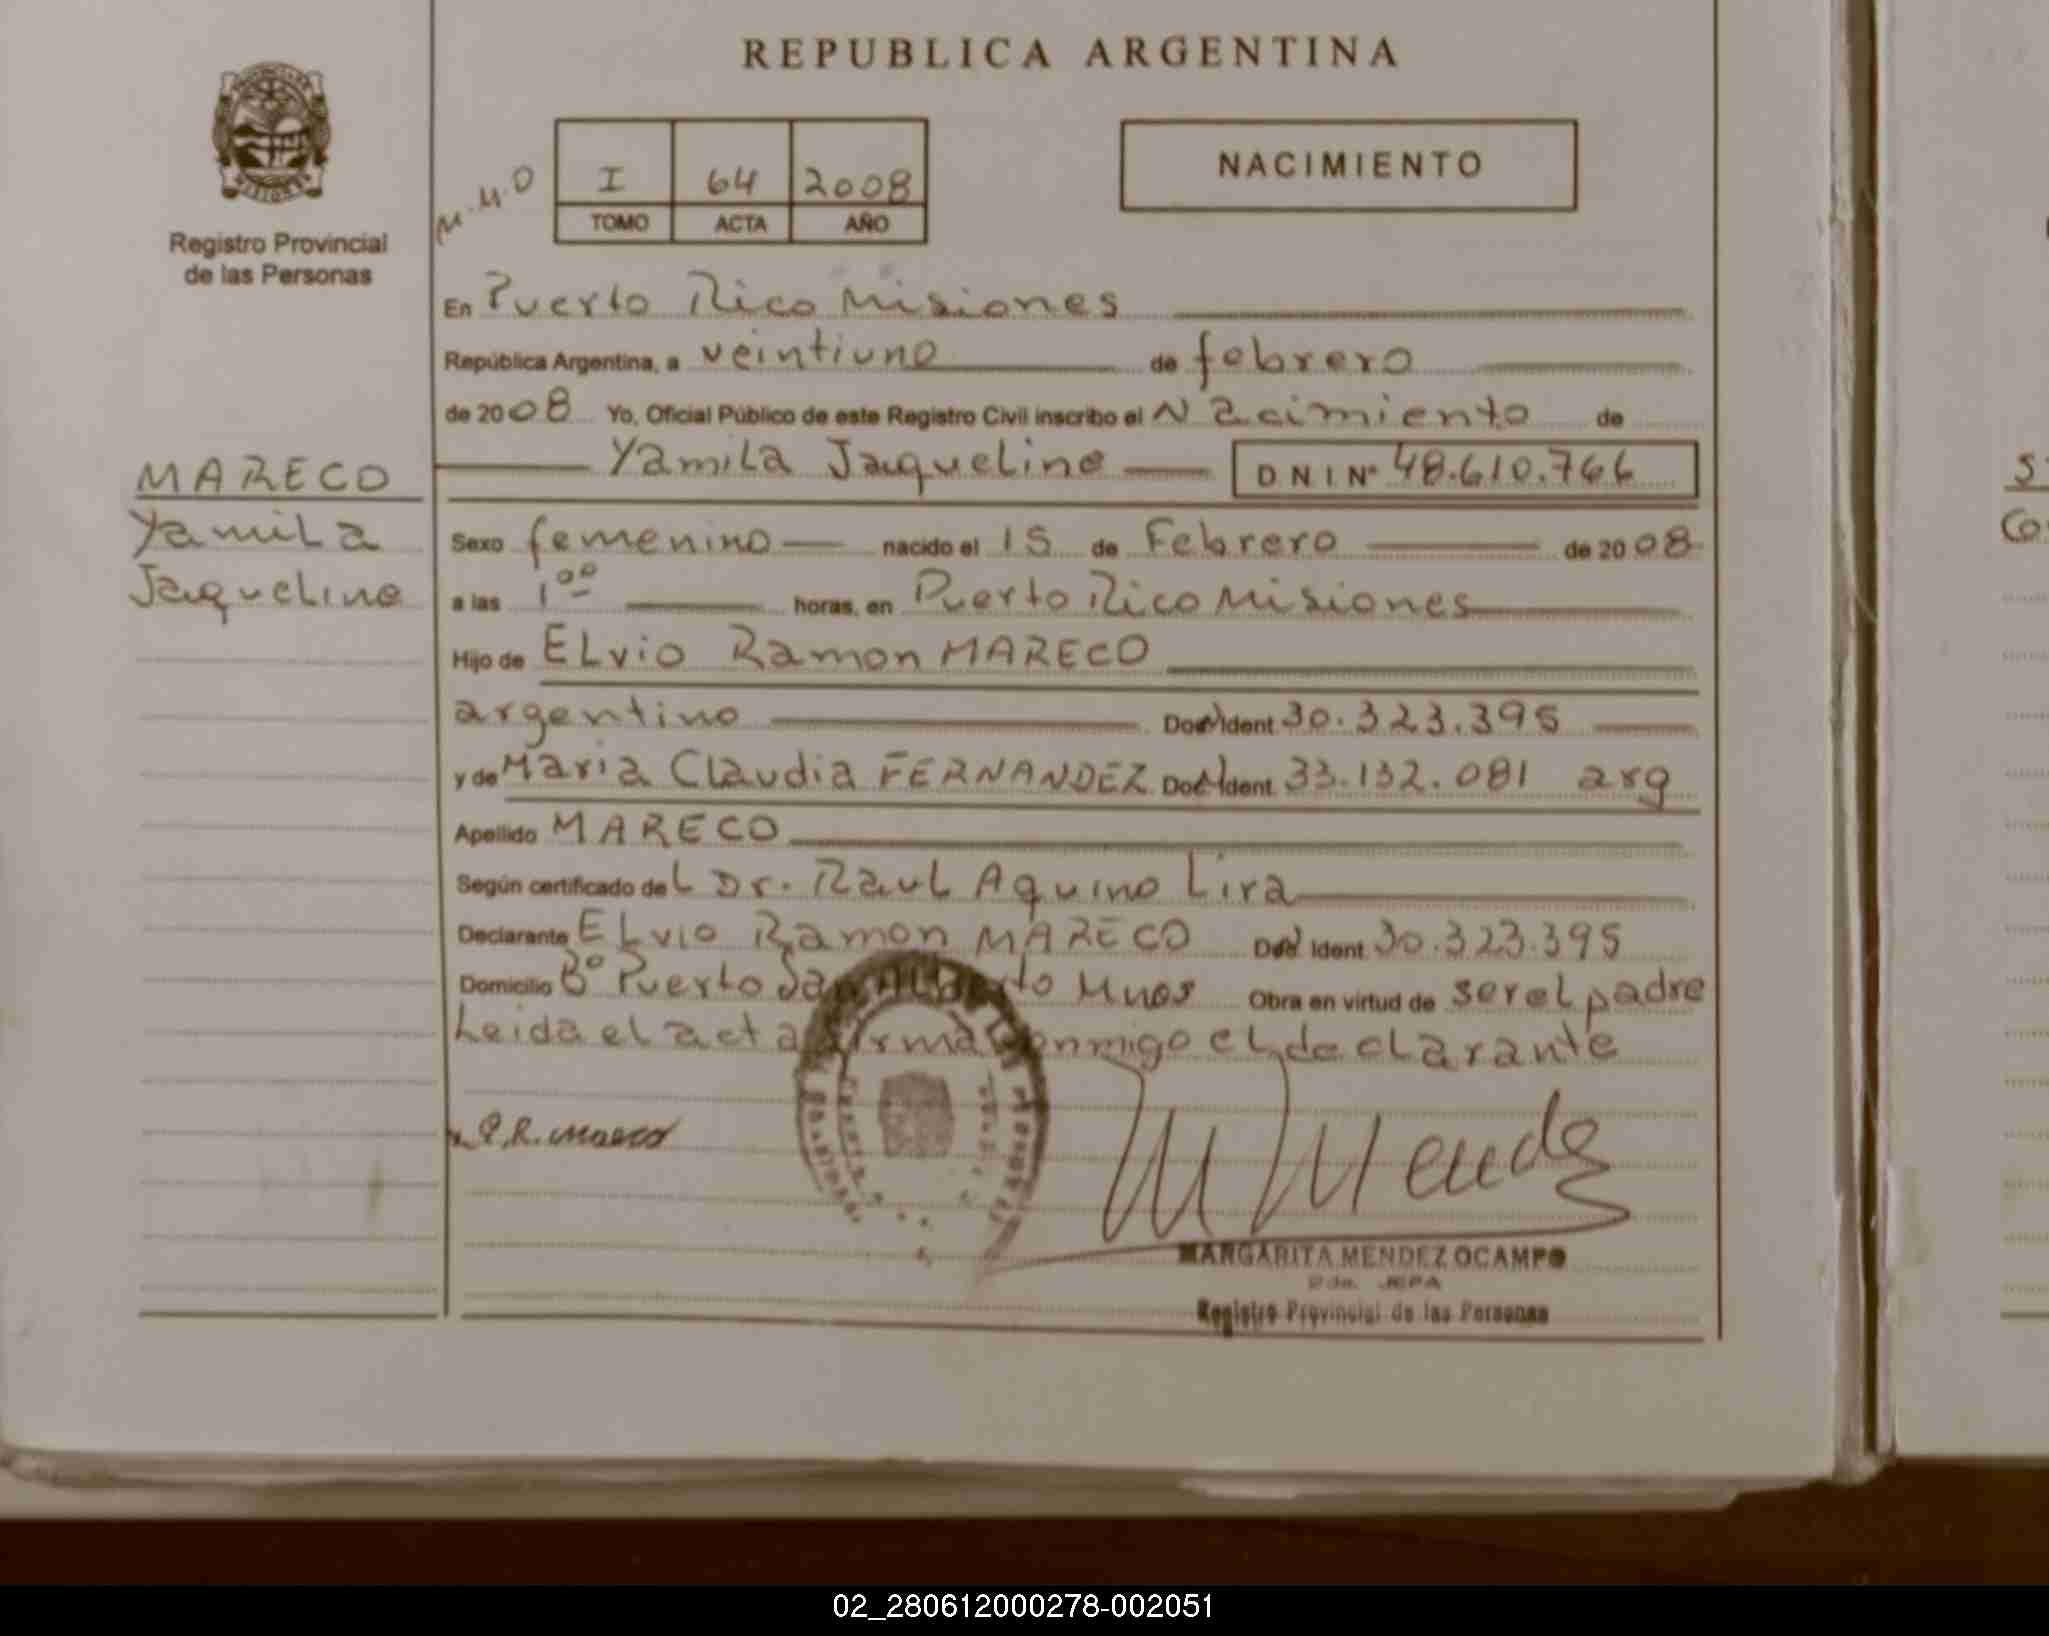 REPUBLICA ARGENTINA
Registro Provincial
de las Personas
M.M.O
I 64 2008
TOMO ACTA AÑO
NACIMIENTO
En Puerto Rico Misiones
República Argentina, a veintiuno de febrero
de 2008 Yo, Oficial Público de este Registro Civil inscribo el Nacimiento de
Yamila Jaqueline D N I Nº 48.610.766
MARECO
Yamila
Jaqueline
Sexo femenino nacido el 15 de Febrero de 2008
a las 1ºº horas, en Puerto Rico Misiones
Hijo de Elvio Ramon MARECO
argentino Doc. Ident 30.323.395
y de Maria Claudia FERNANDEZ Doc. Ident. 33.132.081 arg
Apellido MARECO
Según certificado del Dr. Raul Aquino Lira
Declarante Elvio Ramon MARECO Doc. Ident. 30.323.395
Domicilio Bº Puerto San Alberto Mnes Obra en virtud de ser el padre
Leida el acta firma conmigo el declarante
MARGARITA MENDEZ OCAMPO
JEFA
Registro Provincial de las Personas
02_280612000278-002051